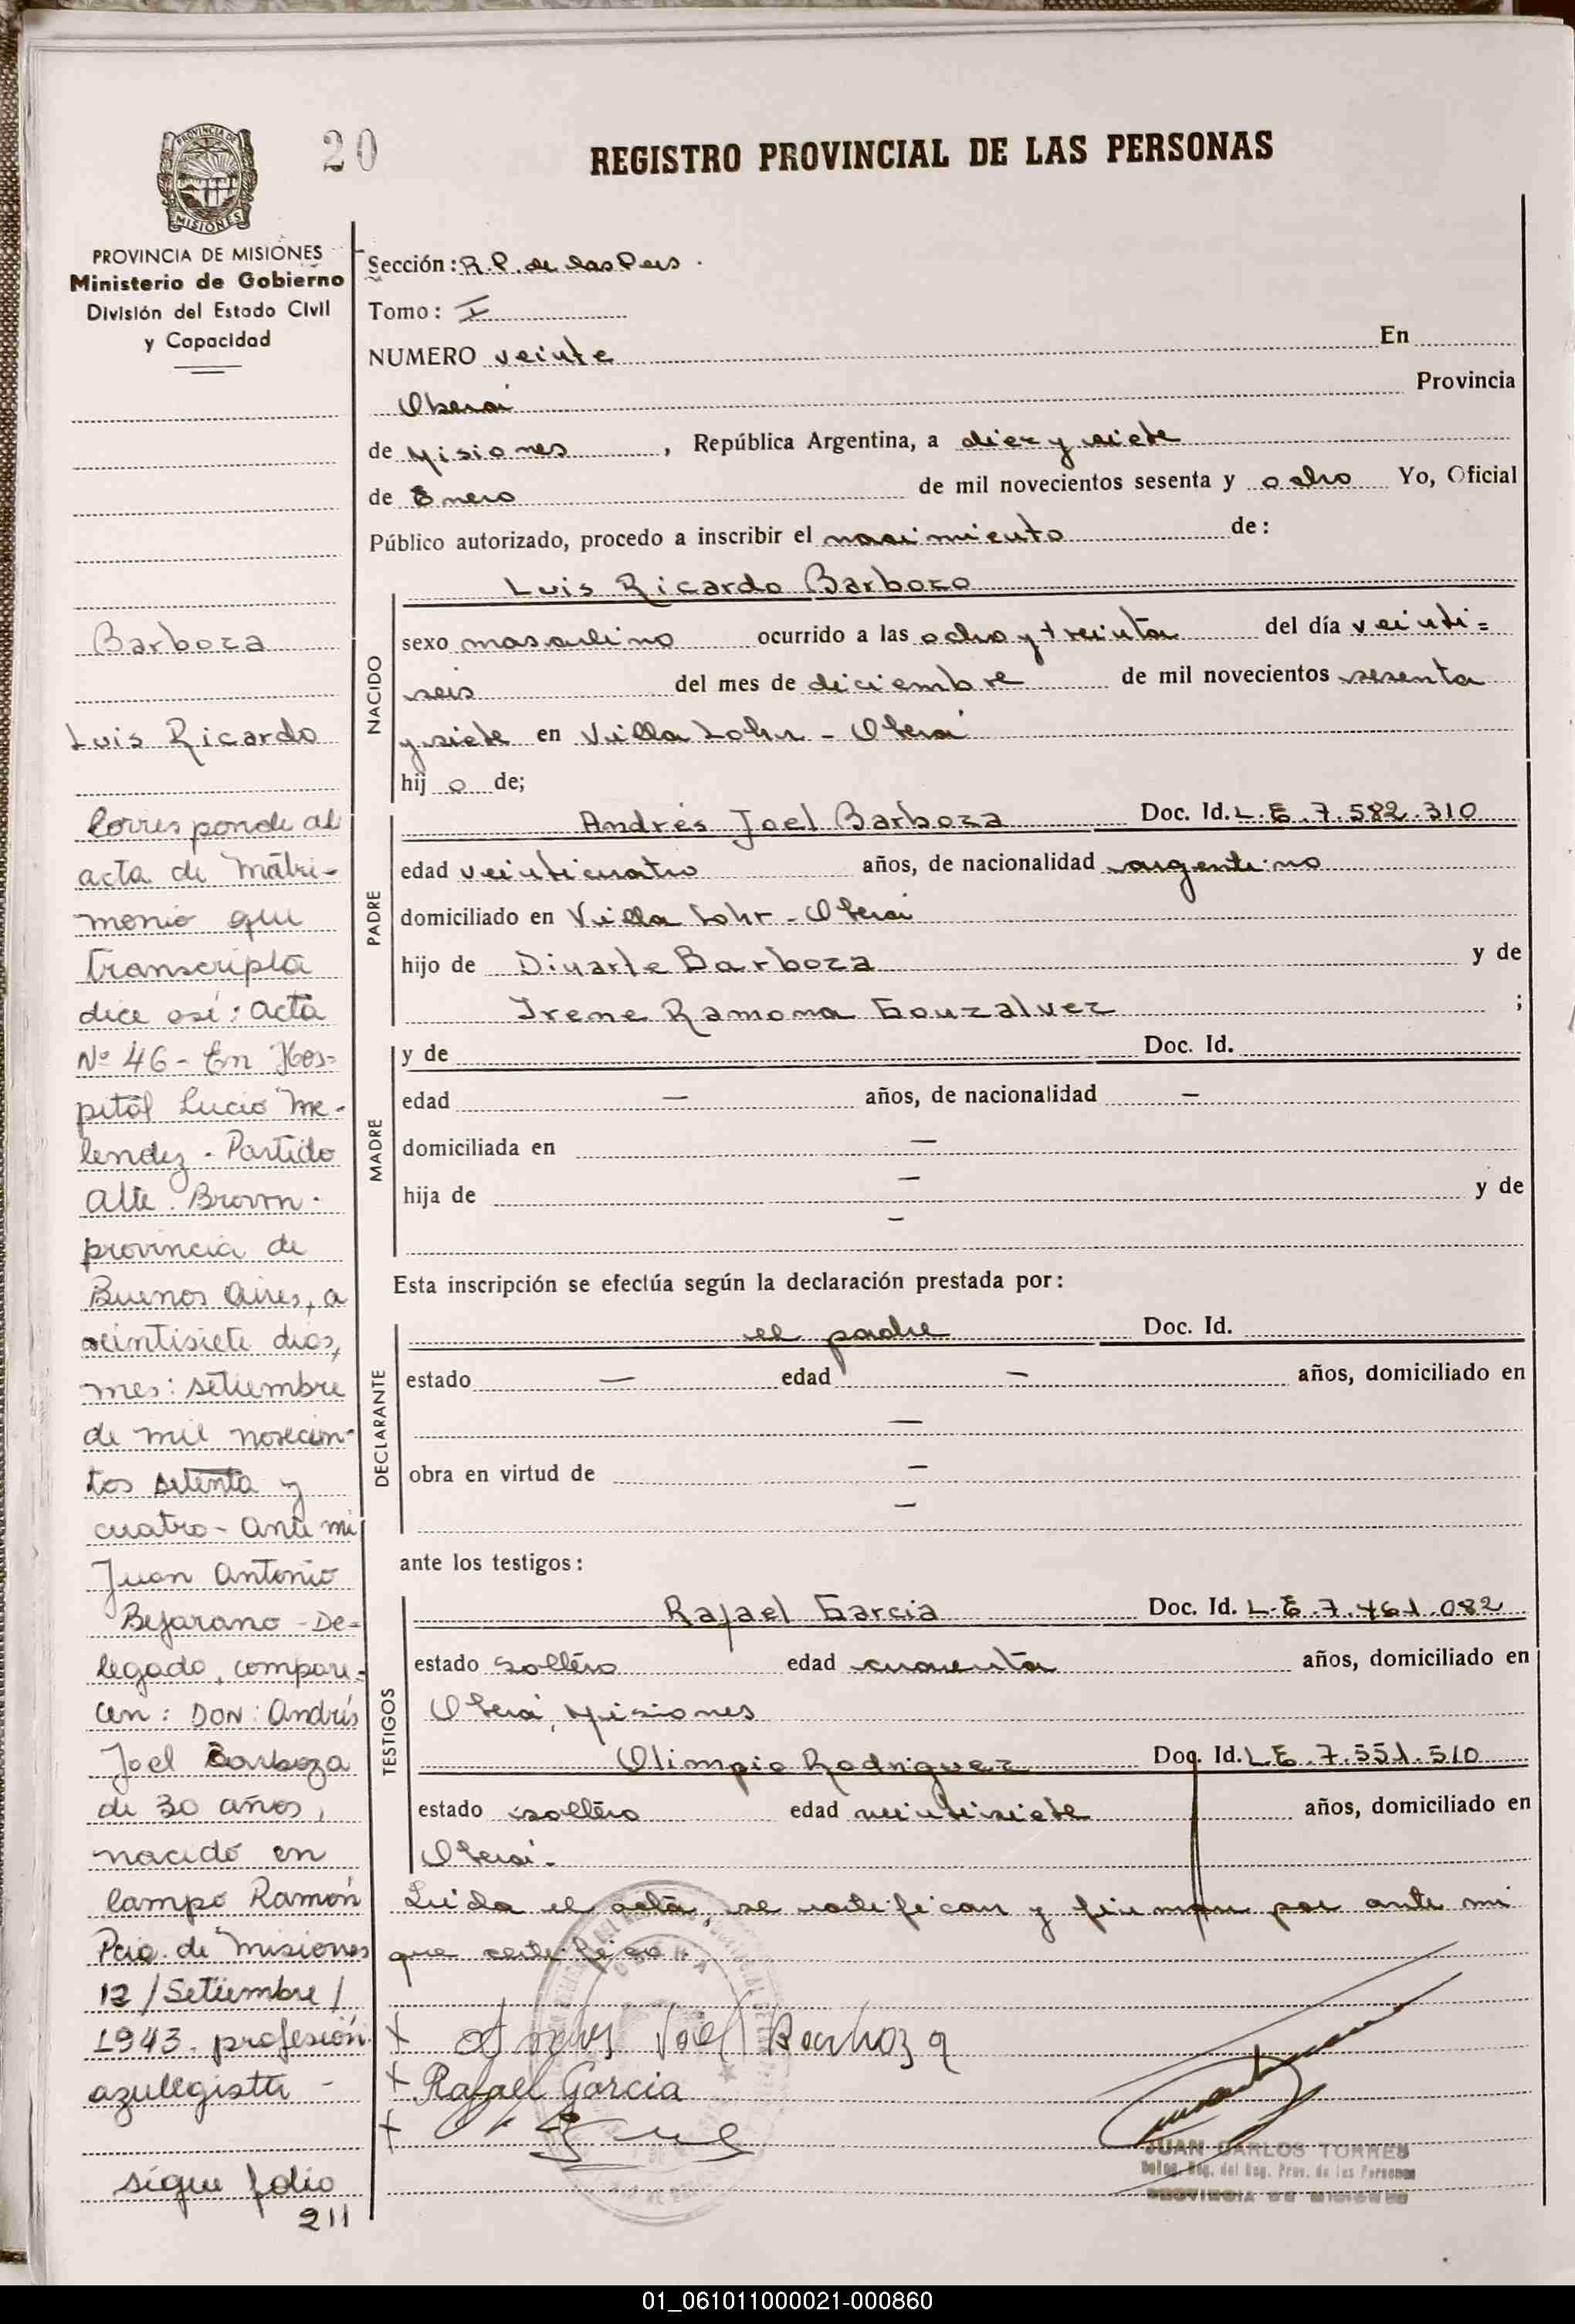 PROVINCIA DE MISIONES
20
REGISTRO PROVINCIAL DE LAS PERSONAS
PROVINCIA DE MISIONES
Ministerio de Gobierno
División del Estado Civil
y Capacidad
Barboza
Luis Ricardo
Corresponde al
acta de Matri-
monio que
transcripta
dice así: acta
Nº 46 - En Hos-
pital Lucio Me-
lendez - Partido
Alte. Brown -
provincia de
Buenos Aires, a
veintisiete dias,
mes: setiembre
de mil novecien-
tos setenta y
cuatro - Ante mi
Juan Antonio
Bejarano - De-
legado, compare-
cen: DON: Andrés
Joel Barboza
de 30 años,
nacido en
Campo Ramón
Pcia. de Misiones
12/Setiembre/
1943. profesión
azulegista -
sigue folio
211
Sección: R.P. de las Pers.
Tomo: I
NUMERO veinte En
Oberá Provincia
de Misiones, República Argentina, a diez y siete
de Enero de mil novecientos sesenta y ocho Yo, Oficial
Público autorizado, procedo a inscribir el nacimiento de:
NACIDO
Luis Ricardo Barboza
sexo masculino ocurrido a las ocho y treinta del día veinti=
seis del mes de diciembre de mil novecientos sesenta
y siete en Villa Lohr - Oberá
hij o de;
PADRE
Andrés Joel Barboza Doc. Id. L.E. 7.582.310
edad veinticuatro años, de nacionalidad argentino
domiciliado en Villa Lohr - Oberá
hijo de Diuarte Barboza y de
Irene Ramona Gonzalvez ;
MADRE
y de Doc. Id.
edad — años, de nacionalidad —
domiciliada en —
hija de — y de
—
Esta inscripción se efectúa según la declaración prestada por:
DECLARANTE
el padre Doc. Id.
estado — edad — años, domiciliado en
—
obra en virtud de —
—
ante los testigos:
TESTIGOS
Rafael Garcia Doc. Id. L.E. 7.461.082
estado soltero edad cuarenta años, domiciliado en
Oberá, Misiones
Olimpio Rodriguez Doc. Id. L.E. 7.551.510
estado soltero edad veintisiete años, domiciliado en
Oberá.
Leida el acta, se ratifican y firman por ante mi
que certifico.
x Andrés Joel Barboza
x Rafael Garcia
x
JUAN CARLOS TORRES
Deleg. Reg. del Reg. Prov. de las Personas
PROVINCIA DE MISIONES
01_061011000021-000860